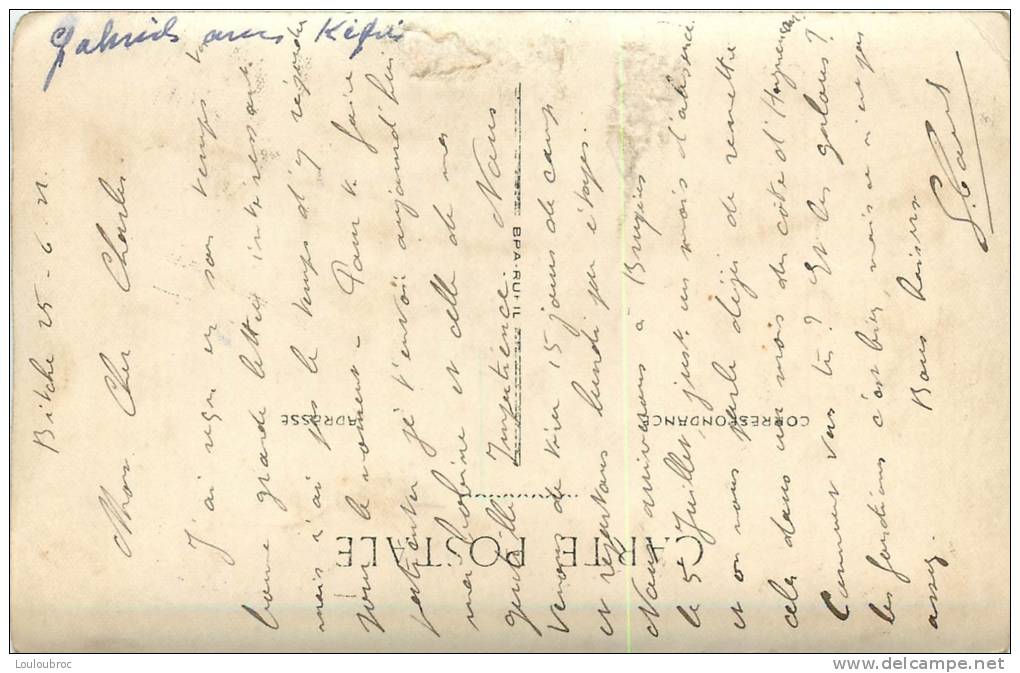 Bitche 25-6-21.
Mon Cher Charles.
J'ai reçu en son temps ta
bonne grande lettre intéressante
mais n'ai pas le temps d'y répondre
pour le moment - Pour te faire
patienter je t'envoie aujourd'hui
ma bobine et celle de mes
Nous
venons de tirer 15 jours de camp
et rejoignons lundi par étapes.
Nous arriverons à Bruyères
le 5 Juillet, juste un mois d'absence
et on nous parle déjà de remettre
cela dans un mois du côté d'Haguenau
Comment vas tu? Et les galons?
les c'est bien, mais ce n'est pas
assez. Bons baisers
G. Paul
Gabriel avec Képi
CARTE POSTALE
CORRESPONDANCE
ADRESSE
Louloubroc
www.delcampe.net